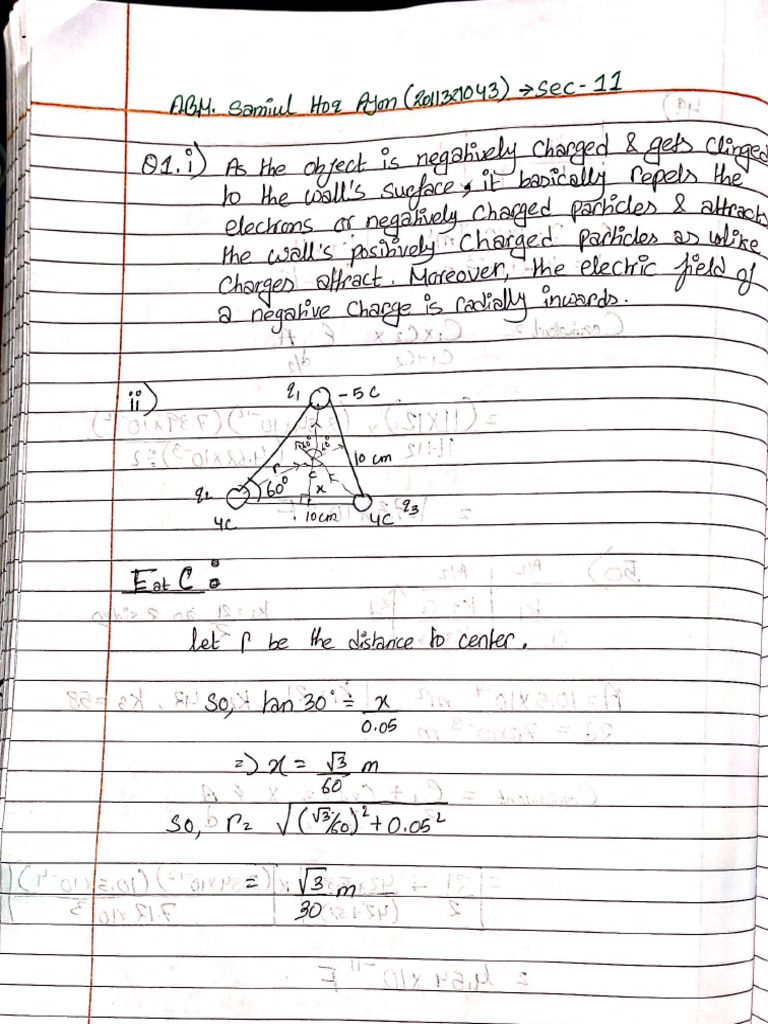 ABM. Samiul Hoq Ajon (2011321043) → sec - 11
Q1.i) As the object is negatively charged & gets clinged
to the wall's surface, it basically repels the
electrons or negatively charged particles & attracts
the wall's positively charged particles as unlike
charges attract. Moreover, the electric field of
a negative charge is radially inwards.
ii)
q1 -5C
10 cm
r
r
C
60°
x
q2
4C
10cm
4C q3
E at C :
let r be the distance to center.
So, tan 30° = x / 0.05
=> x = √3 / 60 m
So, r = √((√3/60)² + 0.05²)
= √3 / 30 m